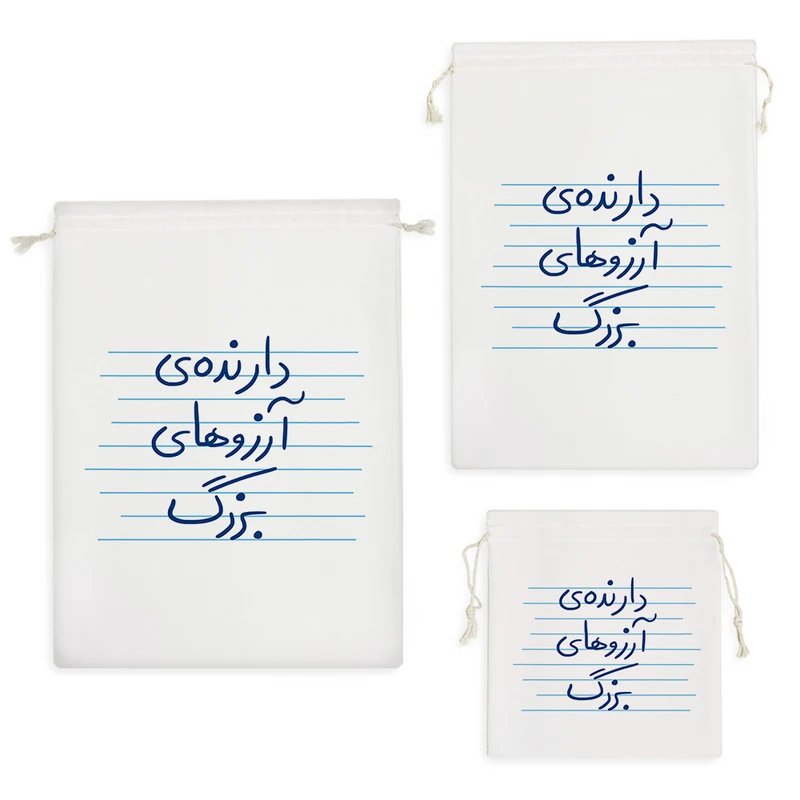 دارنده‌ی
آرزوهای
بزرگ
دارنده‌ی
آرزوهای
بزرگ
دارنده‌ی
آرزوهای
بزرگ